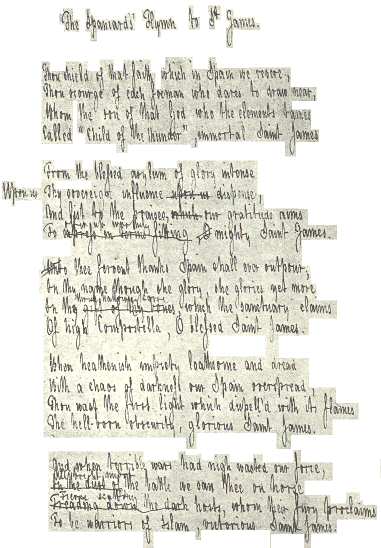 The Spaniards' Hymn to St James.
Thou shield of that faith which in Spain we revere,
Thou scourge of each foeman who dares to draw near,
Whom the Son of that God who the elements tames
Called "Child of the Thunder", immortal Saint James
From the blessed asylum of glory intense
Upon us Thy sovereign influence upon us dispense,
And list to the praises our gratitude aims
To express in terms fitting, O mighty Saint James.
To thee fervent thanks Spain shall ever outpour,
In thy name though she glory, she glories yet more
In thy which the sanctuary claims
Of high Compostella, O blessed Saint James.
When heathenish impiety loathsome and dread
With a chaos of darkness our Spain overspread
Thou wast the first light which dispell'd with its flames
The hell-born obscurity, glorious Saint James.
And when terrible wars had nigh wasted our force,
the battle we saw thee on horse
the dark hosts, whom fury proclaims
To be warriors of Islam, victorious Saint James.